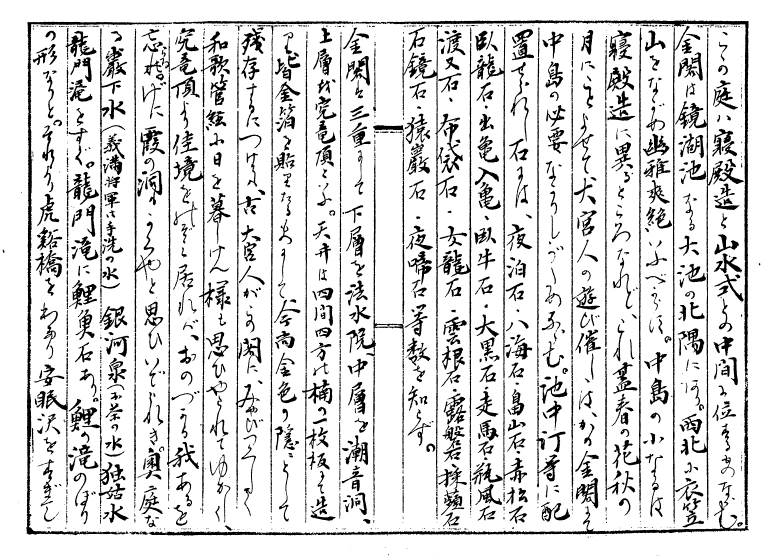 この庭は寝殿造と山水式との中間に位するものなるべし。
金閣は鏡湖池なる大池の北隅にあり。西北に衣笠
山をながめ幽雅爽絶いふべからず。中島の小なるは
寝殿造に異るところなれど、これ蓋春の花秋の
月にことよせて、大宮人の遊び催しは、かの金閣にて
中島の必要なかりしがためならむ。池中汀等に配
置せられし石には、夜泊石・八海石・畠山石・赤松石・
臥龍石・出亀入亀・臥牛石・大黒石・走馬石・瓶風石
渡又石・布袋石・女龍石・雲根石・露盤石・採類石
石鏡石・猿巌石・夜啼石等数を知らず。
金閣は三重にして下層を法水院、中層を潮音洞、
上層を究竟頂と云ふ。天井は四間四方の楠の一枚板にて造
り皆金箔を貼りたるものにして今尚金色の隠として
残存するにつけても、古大宮人がこの閣に、みやびつくして
和歌管絃に日を暮しけん様も思ひやられてゆかしく、
究竟頂より佳境をのぞき居れば、おのづから我あるを
忘れげに霞の洞もかくやと思ひいでられき。奥庭な
る巌下水(義満将軍御手洗の水)銀河泉(お茶の水)独姑水
龍門滝をすぐ。龍門滝に鯉魚石あり。鯉の滝のぼり
の形なりと。それより虎谿橋をわたり安眠沢をすぎし